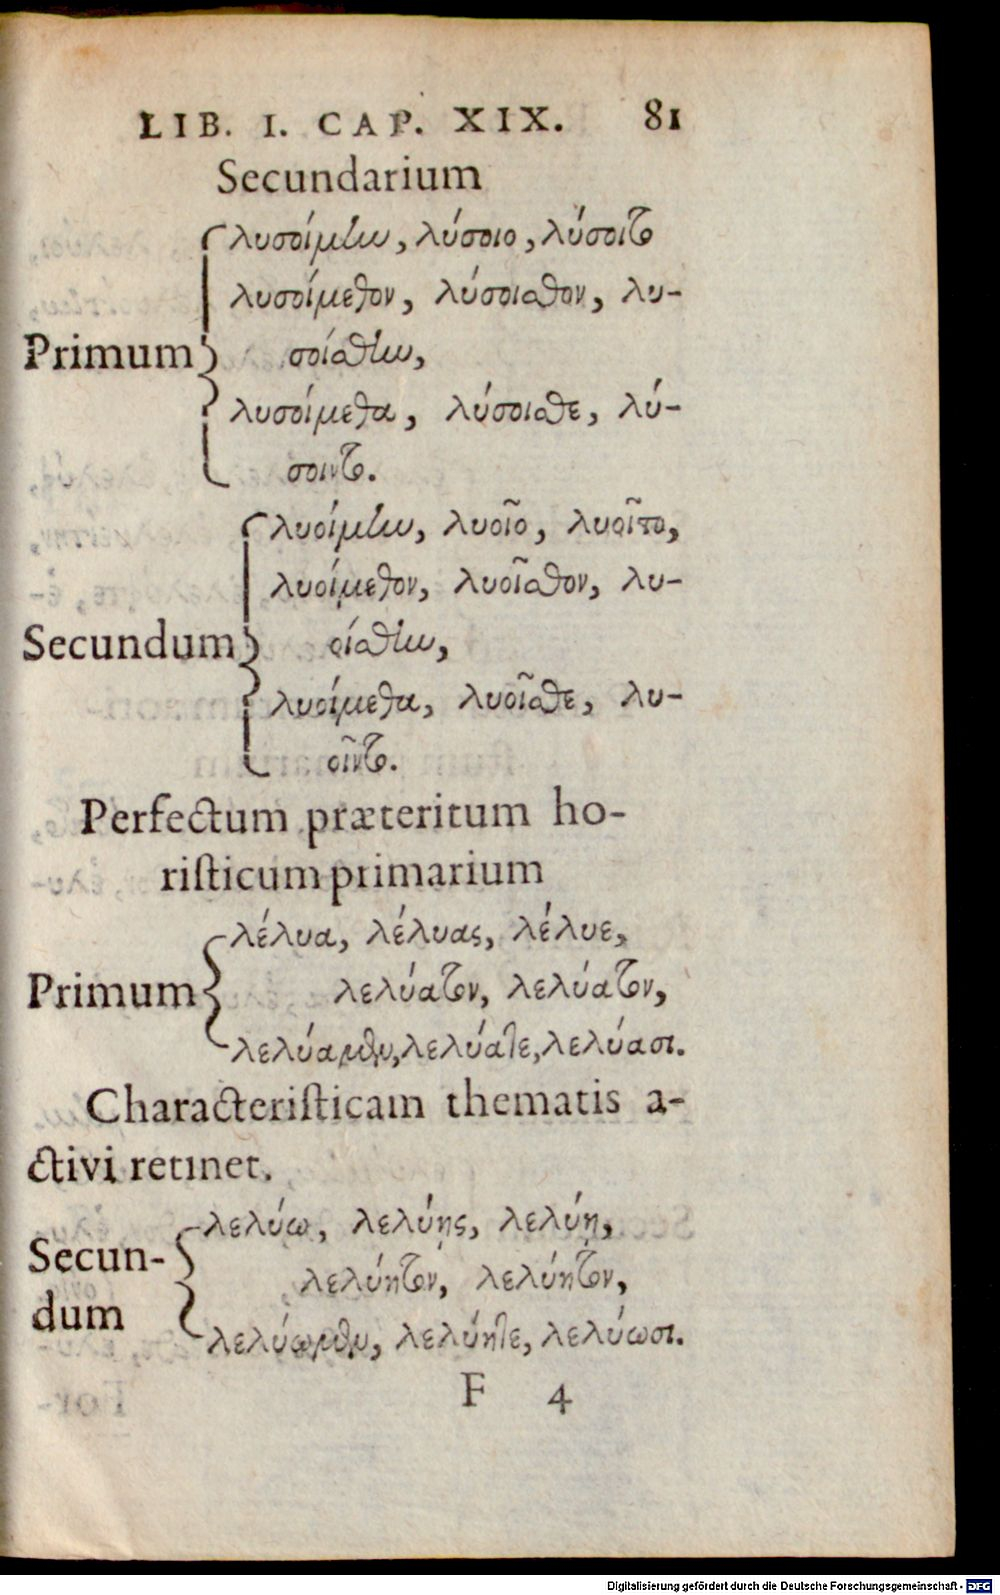 LIB. I. CAP. XIX. 81
Secundarium
λυσοίμην, λύσοιο, λύσοιτο
λυσοίμεθον, λύσοισθον, λυ-
Primum
σοίσθην,
λυσοίμεθα, λύσοισθε, λύ-
σοιντο.
λυοίμην, λυοῖο, λυοῖτο,
λυοίμεθον, λυοῖσθον, λυ-
Secundum
οίσθην,
λυοίμεθα, λυοῖσθε, λυ-
οῖντο.
Perfectum præteritum ho-
risticum primarium
λέλυα, λέλυας, λέλυε,
Primum
λελύατον, λελύατον,
λελύαμεν, λελύατε, λελύασι.
Characteristicam thematis a-
ctivi retinet.
λελύω, λελύης, λελύη,
Secun-
λελύητον, λελύητον,
dum
λελύωμεν, λελύητε, λελύωσι.
F 4
Digitalisierung gefördert durch die Deutsche Forschungsgemeinschaft - DFG